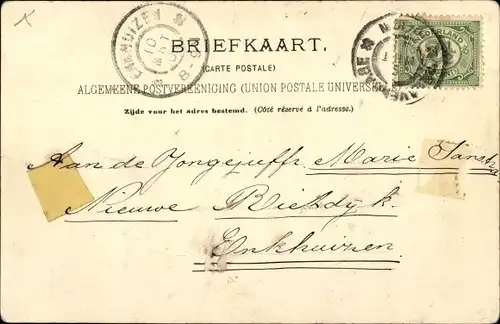 BRIEFKAART.
(CARTE POSTALE)
ALGEMEENE POSTVEREENIGING (UNION POSTALE UNIVERSELLE)
Zijde voor het adres bestemd. (Côté réservé à l'adresse.)
ENKHUIZEN
NEDERLAND
Aan de Jongejuffr. Marie
Nieuwe Rietdyk.
Enkhuizen.